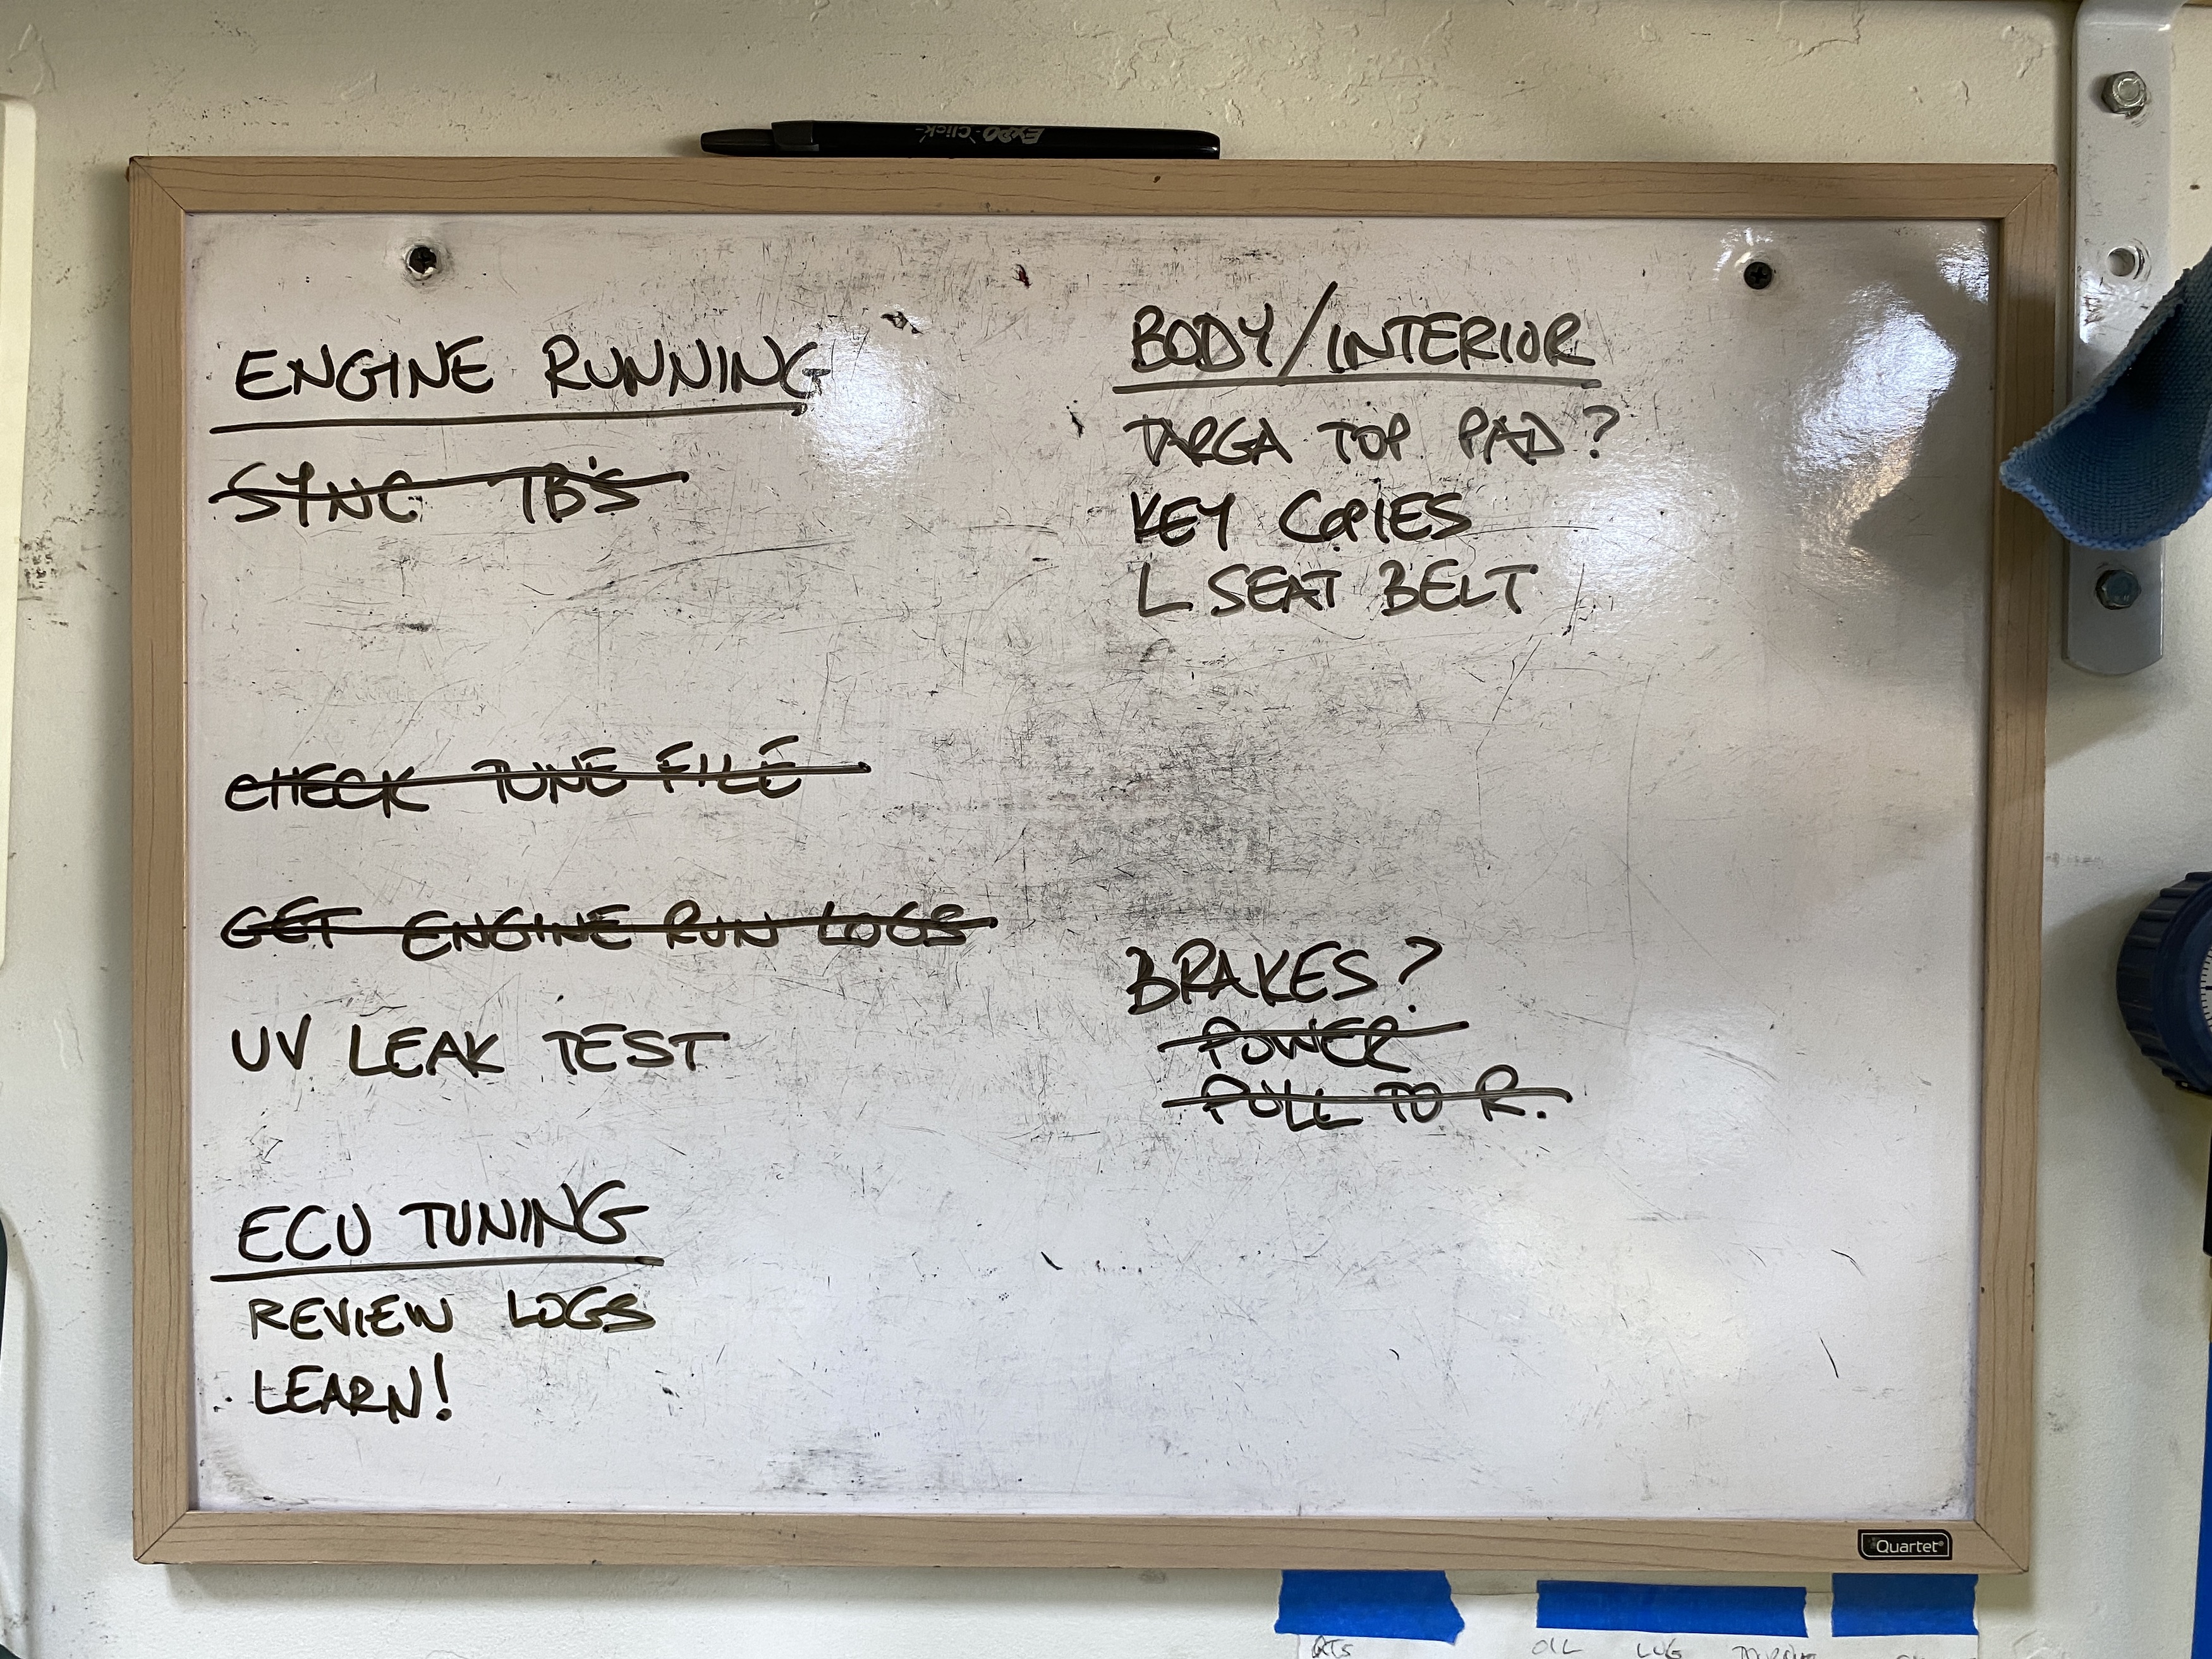 EXPO Click
ENGINE RUNNING
SYNC TB'S
CHECK TUNE FILE
GET ENGINE RUN LOGS
UV LEAK TEST
ECU TUNING
REVIEW LOGS
LEARN!
BODY/INTERIOR
TARGA TOP PAD?
KEY COPIES
L SEAT BELT
BRAKES?
POWER
PULL TO R.
Quartet
OIL LUG